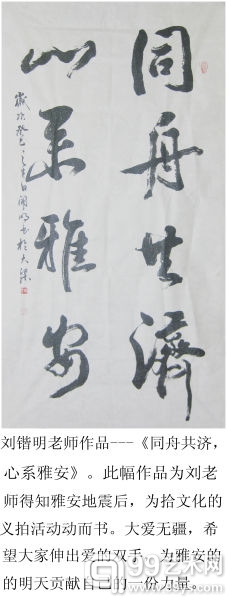 同舟共濟
心系雅安
歲次癸巳之春日
明書於大梁
刘锴明老师作品---《同舟共济，
心系雅安》。此幅作品为刘老
师得知雅安地震后，为拾文化的
义拍活动动而书。大爱无疆，希
望大家伸出爱的双手，为雅安的
的明天贡献自己的一份力量。
99艺术网